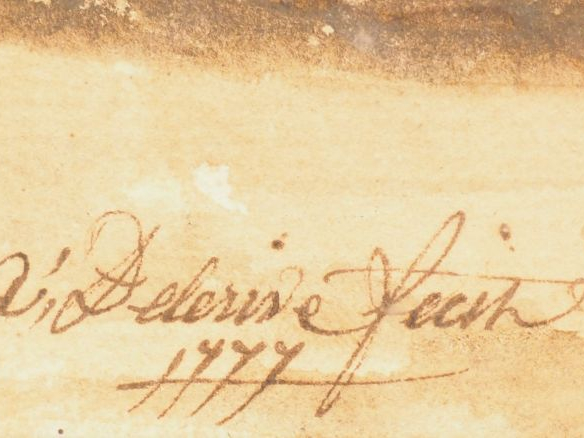 Delerive fecit
1777